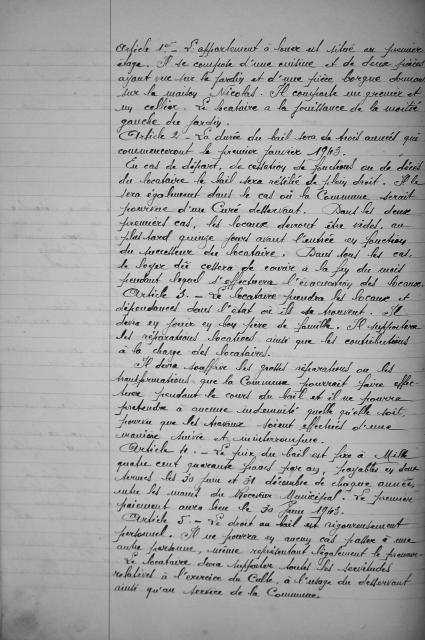 Article 1er - L'appartement à louer est situé au premier
étage. Il se compose d'une cuisine et de deux pièces
ayant vue sur le jardin et d'une pièce borgne donnant
sur la maison Nicolas. Il comporte un grenier et
un cellier. Le locataire a la jouissance de la moitié
gauche du jardin.
Article 2 - La durée du bail sera de trois années qui
commenceront le premier janvier 1943.
En cas de départ, de cessation de fonctions ou de décès
du locataire le bail sera résilié de plein droit. Il le
sera également dans le cas où la Commune serait
pourvue d'un Curé desservant. Dans les deux
premiers cas, les locaux devront être vidés, au
plus tard quinze jours avant l'entrée en fonction
du successeur du locataire. Dans tous les cas,
le loyer dû cessera de courir à la fin du mois
pendant lequel s'effectuera l'évacuation des locaux.
Article 3. - Le locataire prendra les locaux et
dépendances dans l'état où ils se trouvent. Il
devra en jouir en bon père de famille. Il supportera
les réparations locatives ainsi que les contributions
à la charge des locataires.
Il devra souffrir les grosses réparations ou les
transformations que la Commune pourrait faire effec-
tuer pendant le cours du bail et il ne pourra
prétendre à aucune indemnité quelle qu'elle soit,
pourvu que les travaux soient effectués d'une
manière suivie et ininterrompue.
Article 4. - Le prix du bail est fixé à Mille
quatre cent quarante francs par an, payables en deux
termes les 30 juin et 31 décembre de chaque année,
entre les mains du Receveur Municipal. Le premier
paiement aura lieu le 30 Juin 1943.
Article 5. - Le droit au bail est rigoureusement
personnel. Il ne pourra en aucun cas passer à une
autre personne, même représentant légalement le preneur.
Le locataire devra supporter toutes les servitudes
relatives à l'exercice du Culte, à l'usage du desservant
ainsi qu'au service de la Commune.